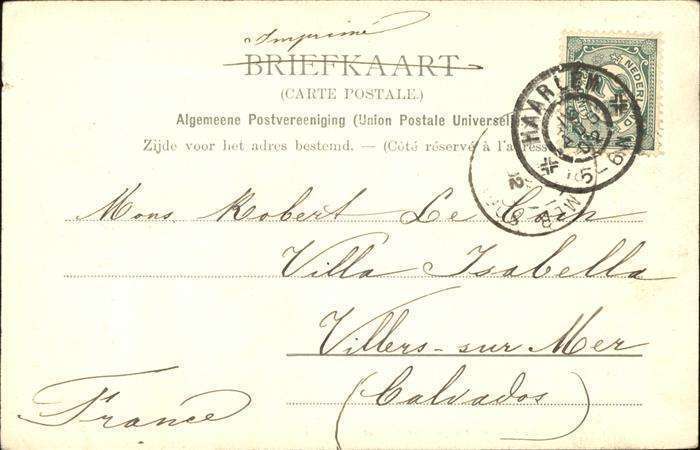 Imprimé
BRIEFKAART
(CARTE POSTALE.)
Algemeene Postvereeniging (Union Postale Universelle)
Zijde voor het adres bestemd. — (Côté réservé à l'adresse
NEDER
HAARLEM
5-6N
Mons. Robert Le
Villa Isabella
Villers-sur Mer
(Calvados)
France